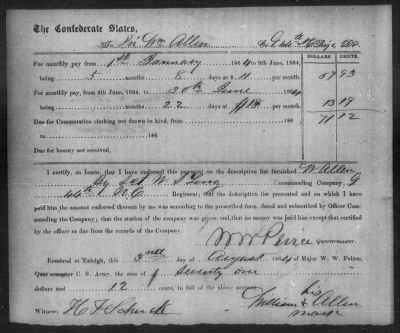 The Confederate States,
To Pri Wm Allen Co. G, 44th N.C.
DOLLARS. CENTS.
For monthly pay from 1st January 1864 to 9th June, 1864,
being 5 months 8 days @ $ 11 per month, 57 93
For monthly pay from 9th June, 1864, to 30th June 1864
being months, 22 days @ $18 per month, 13 19
Due for Commutation clothing not drawn in kind, from 186 71 12
to 186
Due for bounty not received,
I certify, on honor, that I have endorsed this payment on the descriptive list furnished W. Allen
By commanding Company G
44th N.C. Regiment; that the descriptive list presented and on which I have
paid him the amount endorsed thereon by me was according to the prescribed form, dated and subscribed by Officer Com-
manding the Company; that the station of the company was given thereon, and that no money was paid him except that certified
by the officer as due from the records of the Company.
W W Peirce Quartermaster.
Received at Raleigh, this 2nd day of August 1864 of Major W. W. Peirce,
Quartermaster C. S. Army, the sum of seventy one
dollars and 12 cents, in full of the above account.
Witness: William his x mark Allen